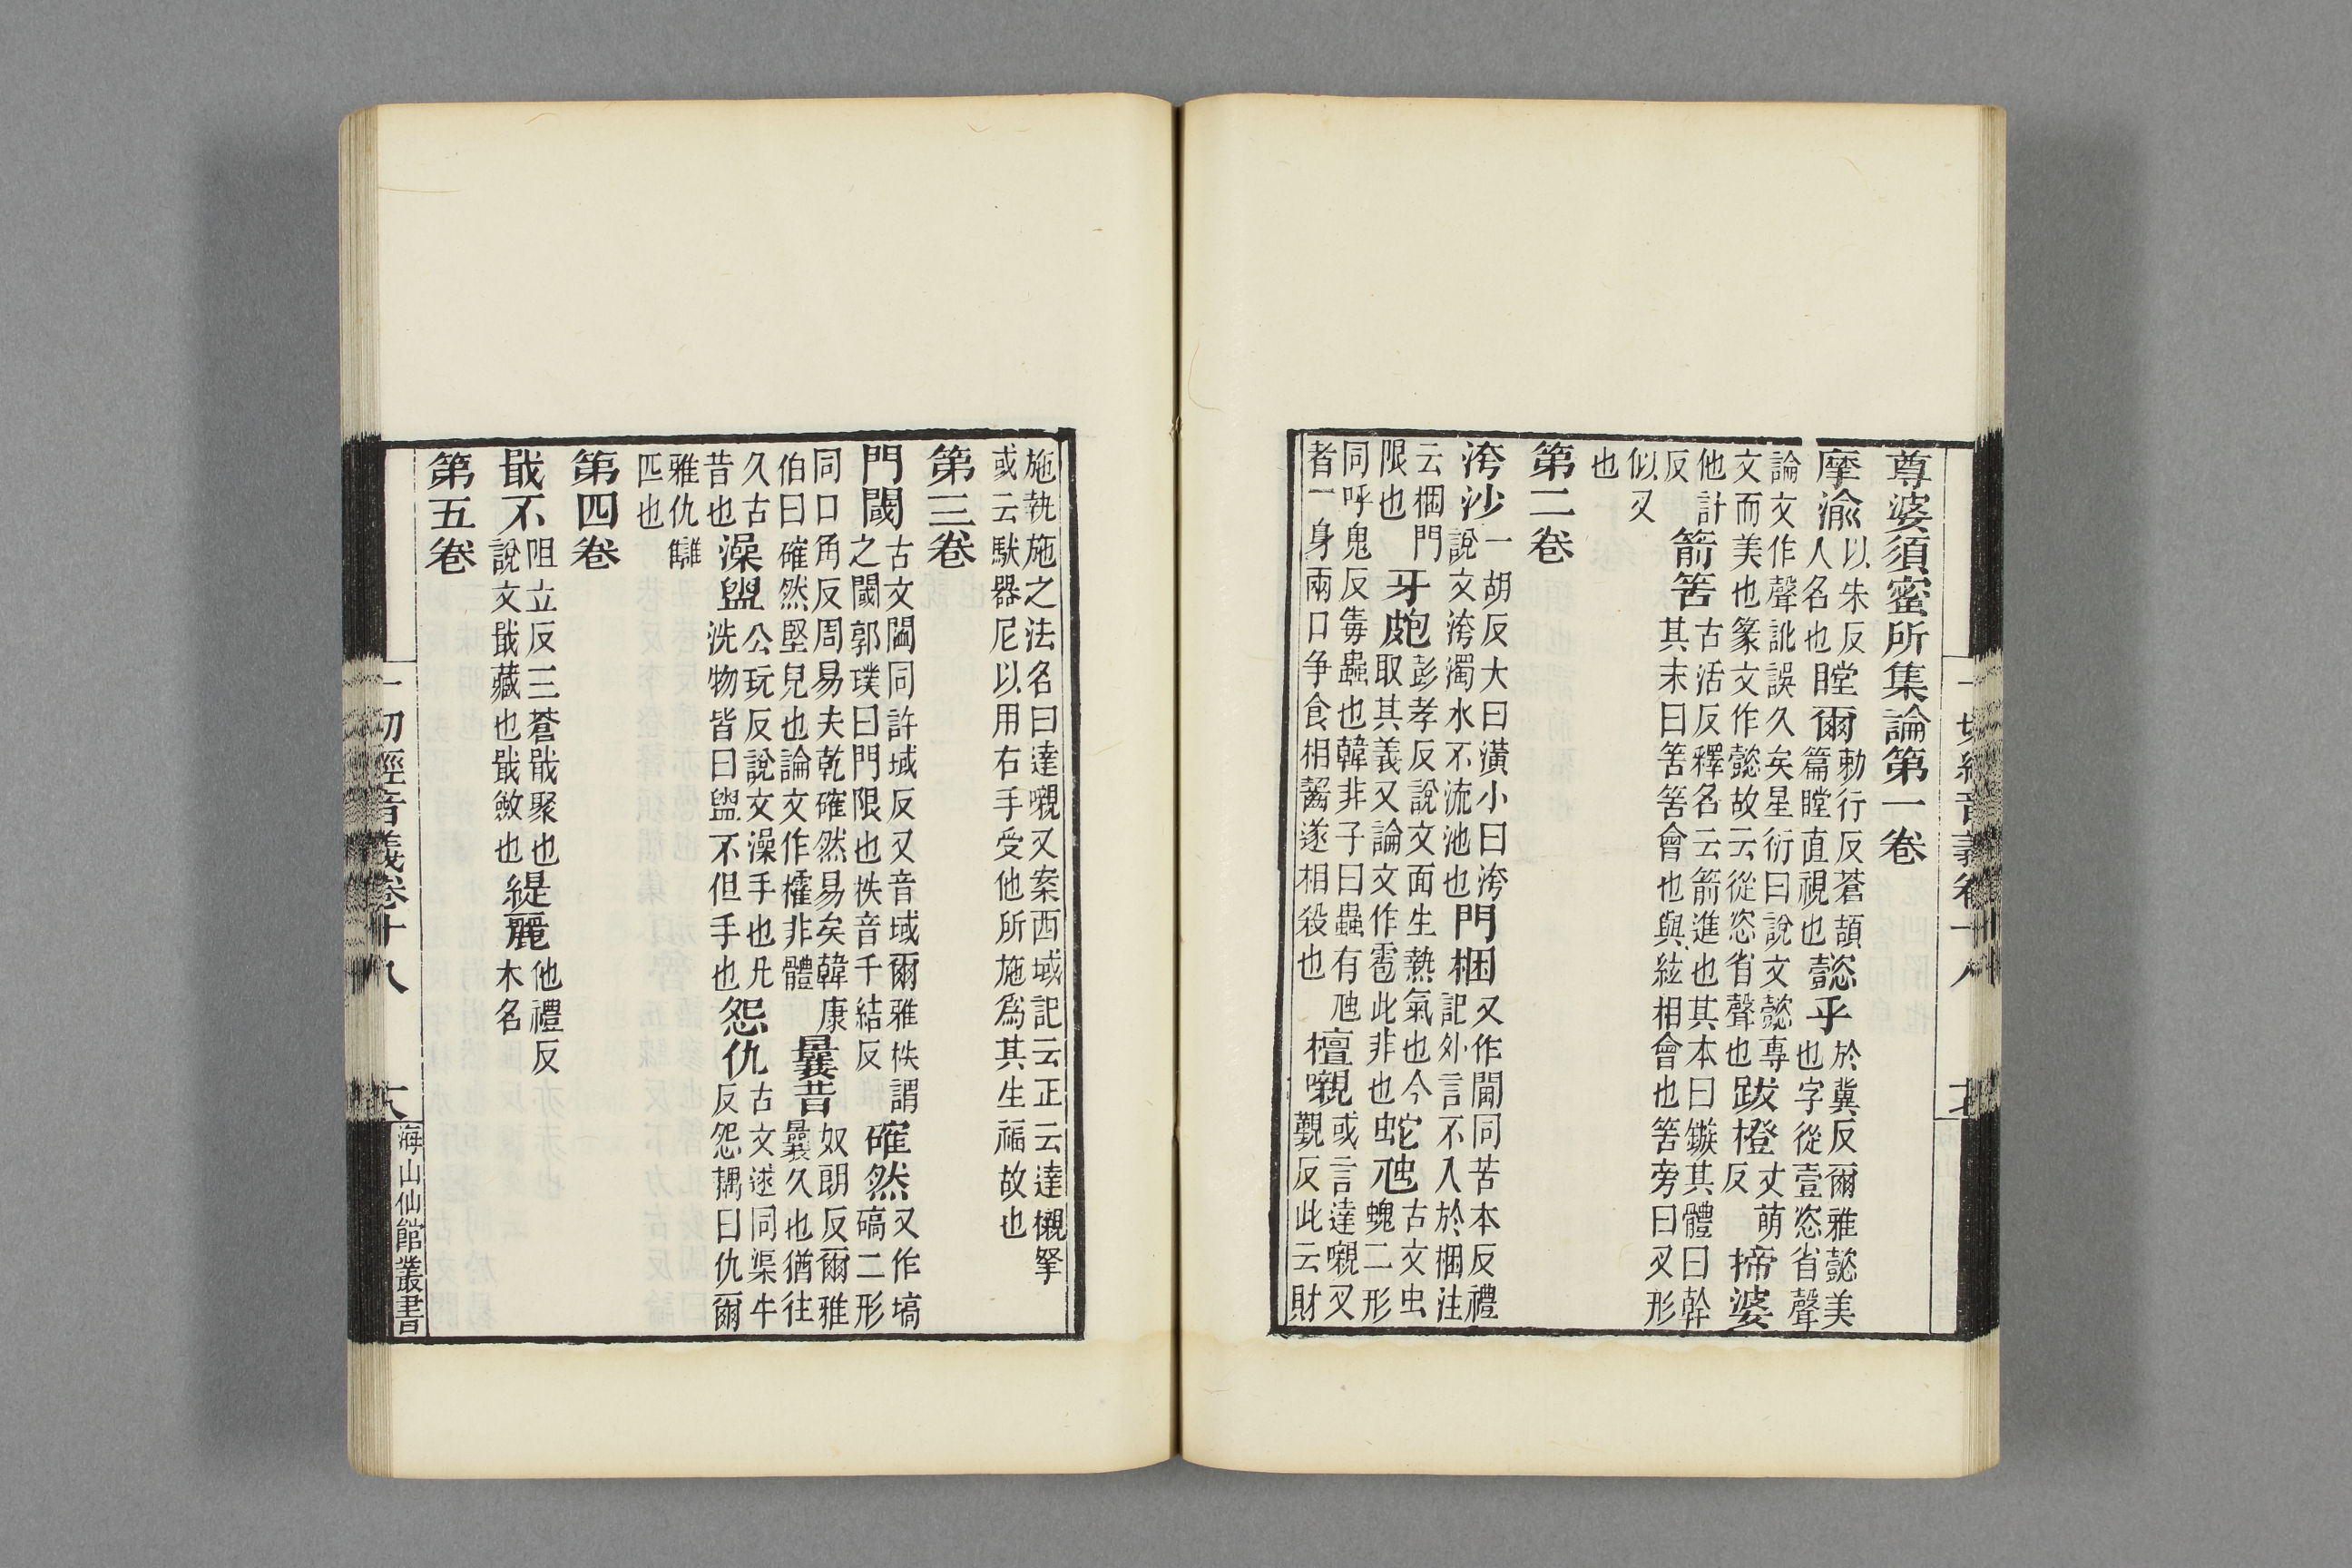 尊婆須蜜所集論第一卷
摩渝以朱反人名也瞠爾勅行反蒼頡篇瞠直視也懿乎於冀反爾雅懿美也字從壹恣省聲
論文作聲訛誤久矣星衍曰說文懿專文而美也篆文作懿故云從恣省聲也跋橙丈萌反揥婆
他計反箭筈古活反釋名云箭進也其本曰鏃其體曰幹其末曰筈筈會也與絃相會也筈旁曰叉形
似叉也
第二卷
洿沙一胡反大曰潢小曰洿說文洿濁水不流池也門梱又作閫同苦本反禮記外言不入於梱注
云梱門限也牙皰彭孝反說文面生熱氣也今取其義又論文作雹此非也蛇虺古文虫螝二形
同呼鬼反毒蟲也韓非子曰蟲有虺者一身兩口爭食相齧遂相殺也檀嚫或言達嚫叉覲反此云財
施執施之法名曰達嚫又案西域記云正云達櫬拏或云馱器尼以用右手受他所施爲其生福故也
第三卷
門閾古文閾同許域反又音域爾雅柣謂之閾郭璞曰門限也柣音千結反確然又作塙碻二形
同口角反周易夫乾確然易矣韓康伯曰確然堅皃也論文作㩁非體曩昔奴朗反爾雅曩久也猶往
久古昔也澡盥公玩反說文澡手也凡洗物皆曰盥不但手也怨仇古文逑同渠牛反怨耦曰仇爾
雅仇讎匹也
第四卷
戢不阻立反三蒼戢聚也說文戢藏也戢斂也緹麗他禮反木名
第五卷
一切經音義卷十八
十八
海山仙館叢書